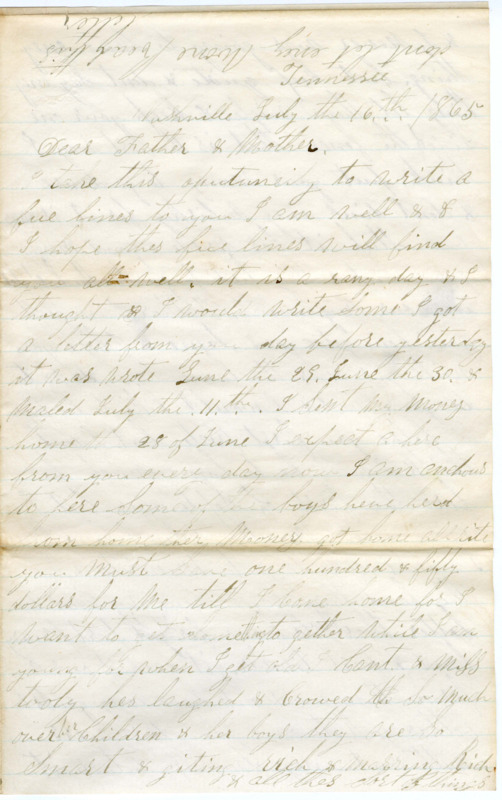 dont let any
letter
Tennessee
Nashville July the 16th. 1865
Dear Father & Mother.
I take this oputunity to write a
few lines to you I am well & &
I hope thes few lines will find
you all well. it is a rany day & I
thought & I would write some I got
a letter from you day before yesterday
it was wrote June the 29. June the 30. &
maled July the 11.th. I sent my money
home 28 of June I expect a here
from you every day now I am anchous
to here some of the boys heve herd
from home ther Mooney got home
you must save one hundred & fifty
dollars for me till I come home for I
want to get something to gether while I am
young for when I get old I Cant & Miss
hes laughed & Crowed so much
over Children & her boys they are so
Smart & giting rich & marring Rich
& all thes sort of things